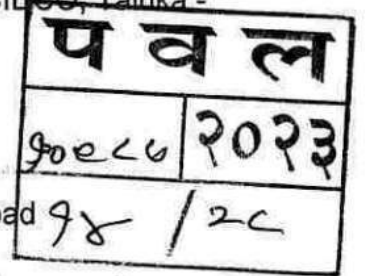 Taluka -
प व ल
१०९८७ २०२३
oad १४ / २८